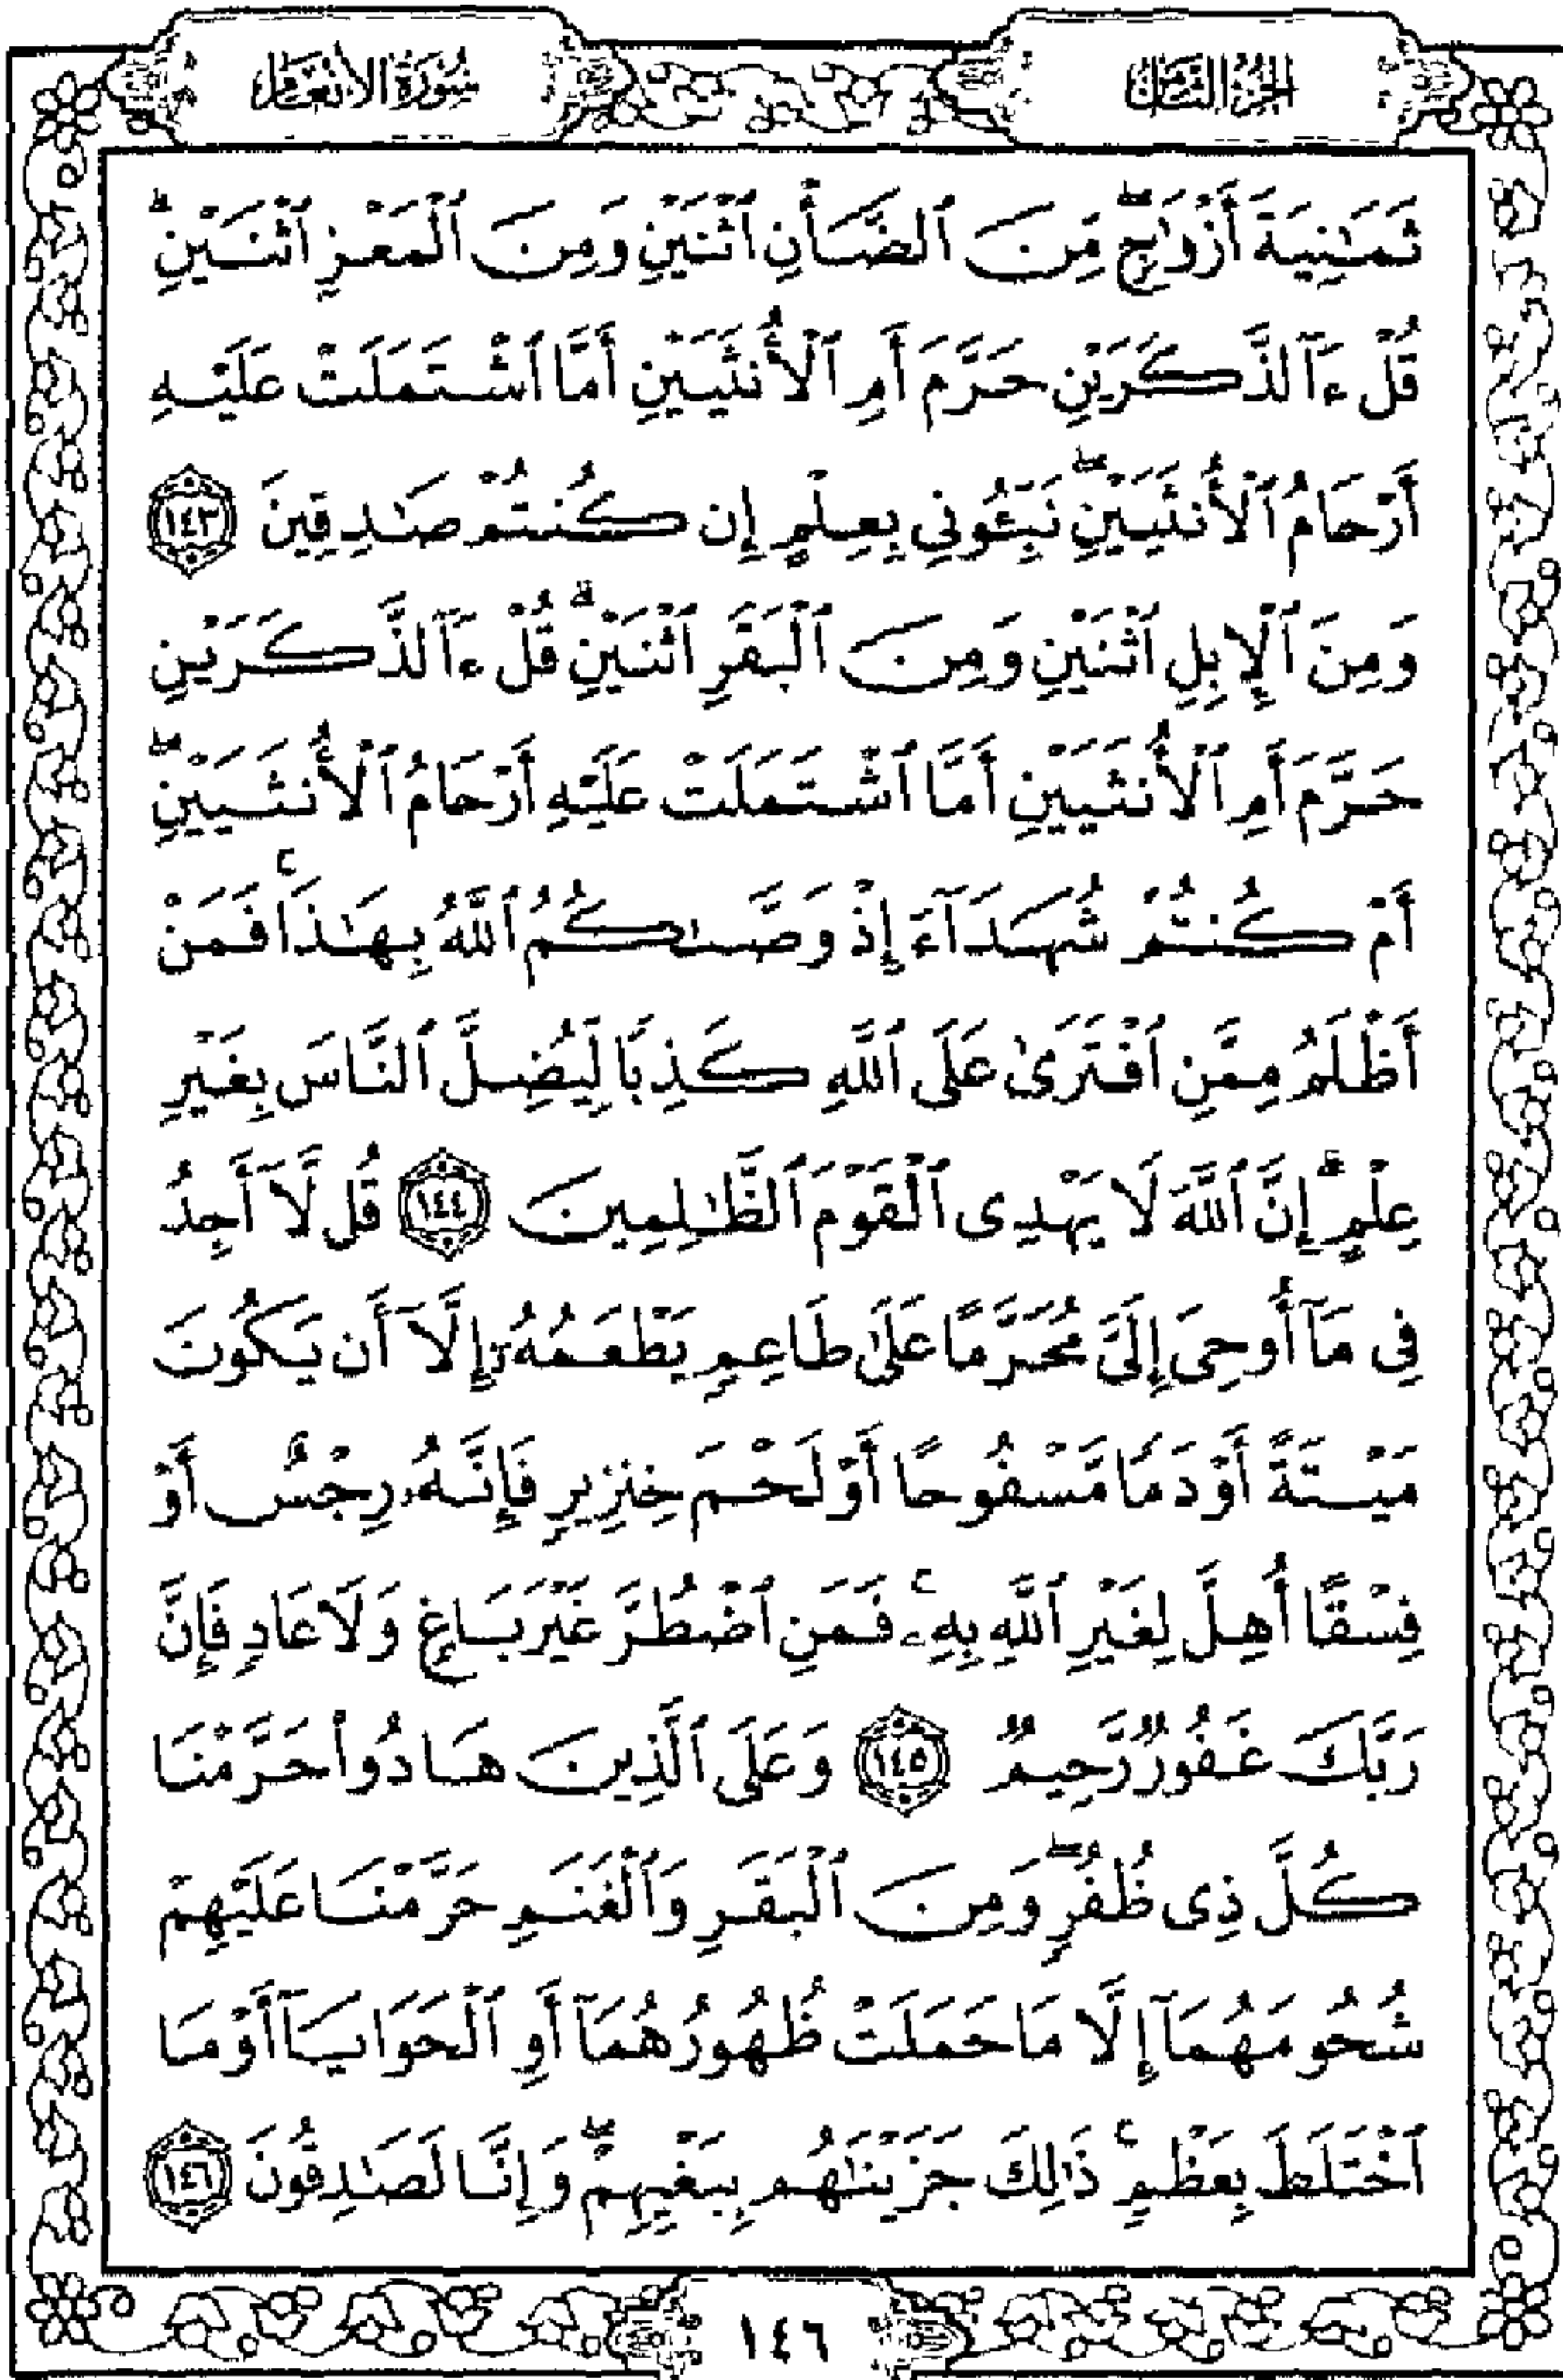 الجزء الثامن
سورة الأنعام
ثَمَٰنِيَةَ أَزْوَٰجٍۖ مِّنَ ٱلضَّأْنِ ٱثْنَيْنِ وَمِنَ ٱلْمَعْزِ ٱثْنَيْنِۗ
قُلْ ءَآلذَّكَرَيْنِ حَرَّمَ أَمِ ٱلْأُنثَيَيْنِ أَمَّا ٱشْتَمَلَتْ عَلَيْهِ
أَرْحَامُ ٱلْأُنثَيَيْنِۖ نَبِّـُٔونِى بِعِلْمٍ إِن كُنتُمْ صَٰدِقِينَ ١٤٣
وَمِنَ ٱلْإِبِلِ ٱثْنَيْنِ وَمِنَ ٱلْبَقَرِ ٱثْنَيْنِۗ قُلْ ءَآلذَّكَرَيْنِ
حَرَّمَ أَمِ ٱلْأُنثَيَيْنِ أَمَّا ٱشْتَمَلَتْ عَلَيْهِ أَرْحَامُ ٱلْأُنثَيَيْنِۖ
أَمْ كُنتُمْ شُهَدَآءَ إِذْ وَصَّىٰكُمُ ٱللَّهُ بِهَٰذَاۚ فَمَنْ
أَظْلَمُ مِمَّنِ ٱفْتَرَىٰ عَلَى ٱللَّهِ كَذِبًا لِّيُضِلَّ ٱلنَّاسَ بِغَيْرِ
عِلْمٍۗ إِنَّ ٱللَّهَ لَا يَهْدِى ٱلْقَوْمَ ٱلظَّٰلِمِينَ ١٤٤ قُل لَّآ أَجِدُ
فِى مَآ أُوحِىَ إِلَىَّ مُحَرَّمًا عَلَىٰ طَاعِمٍ يَطْعَمُهُۥٓ إِلَّآ أَن يَكُونَ
مَيْتَةً أَوْ دَمًا مَّسْفُوحًا أَوْ لَحْمَ خِنزِيرٍ فَإِنَّهُۥ رِجْسٌ أَوْ
فِسْقًا أُهِلَّ لِغَيْرِ ٱللَّهِ بِهِۦۚ فَمَنِ ٱضْطُرَّ غَيْرَ بَاغٍ وَلَا عَادٍ فَإِنَّ
رَبَّكَ غَفُورٌ رَّحِيمٌ ١٤٥ وَعَلَى ٱلَّذِينَ هَادُوا۟ حَرَّمْنَا
كُلَّ ذِى ظُفُرٍۖ وَمِنَ ٱلْبَقَرِ وَٱلْغَنَمِ حَرَّمْنَا عَلَيْهِمْ
شُحُومَهُمَآ إِلَّا مَا حَمَلَتْ ظُهُورُهُمَآ أَوِ ٱلْحَوَايَآ أَوْ مَا
ٱخْتَلَطَ بِعَظْمٍۚ ذَٰلِكَ جَزَيْنَٰهُم بِبَغْيِهِمْۖ وَإِنَّا لَصَٰدِقُونَ ١٤٦
١٤٦